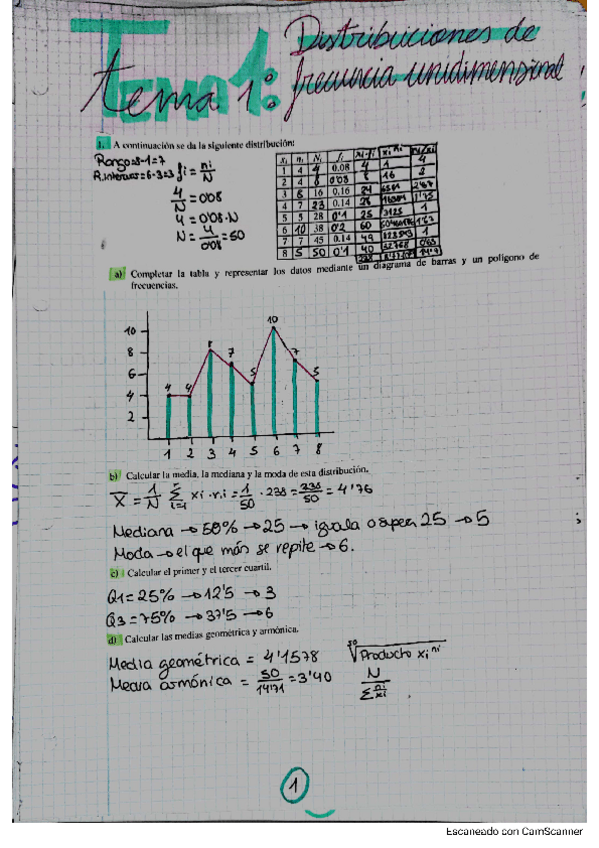 Tema 1: Distribuciones de
frecuencia unidimensional
tema 1:
1. A continuación se da la siguiente distribución:
Rango=8-1=7
R.intercuar=6-3=3
fi = ni/N
4/N = 0'08
4 = 0'08·N
N = 4/0'08 = 50
xi ni Ni fi xi·fi xi^ni ni/xi
1 4 4 0.08 4 1 4
2 4 8 0'08 8 16 2
3 8 16 0.16 24 6561 2'67
4 7 23 0.14 28 16384 1'75
5 5 28 0'1 25 3125 1
6 10 38 0'2 60 1'67
7 7 45 0.14 49 823543 1
8 5 50 0'1 40 32768 0'63
238 14'71
a) Completar la tabla y representar los datos mediante un diagrama de barras y un polígono de
frecuencias.
10
8
6
4
2
4 4 8 7 5 10 7 5
1 2 3 4 5 6 7 8
b) Calcular la media, la mediana y la moda de esta distribución.
X̄ = 1/N Σ i=1 xi·ni = 1/50 · 238 = 238/50 = 4'76
Mediana → 50% → 25 → iguala o super 25 → 5
Moda → el que más se repite → 6.
c) Calcular el primer y el tercer cuartil.
Q1 = 25% → 12'5 → 3
Q3 = 75% → 37'5 → 6
d) Calcular las medias geométrica y armónica.
Media geométrica = 4'1578 ⁵⁰√Producto xi^ni
Media armónica = 50/14'71 = 3'40 N/Σ ni/xi
1
Escaneado con CamScanner